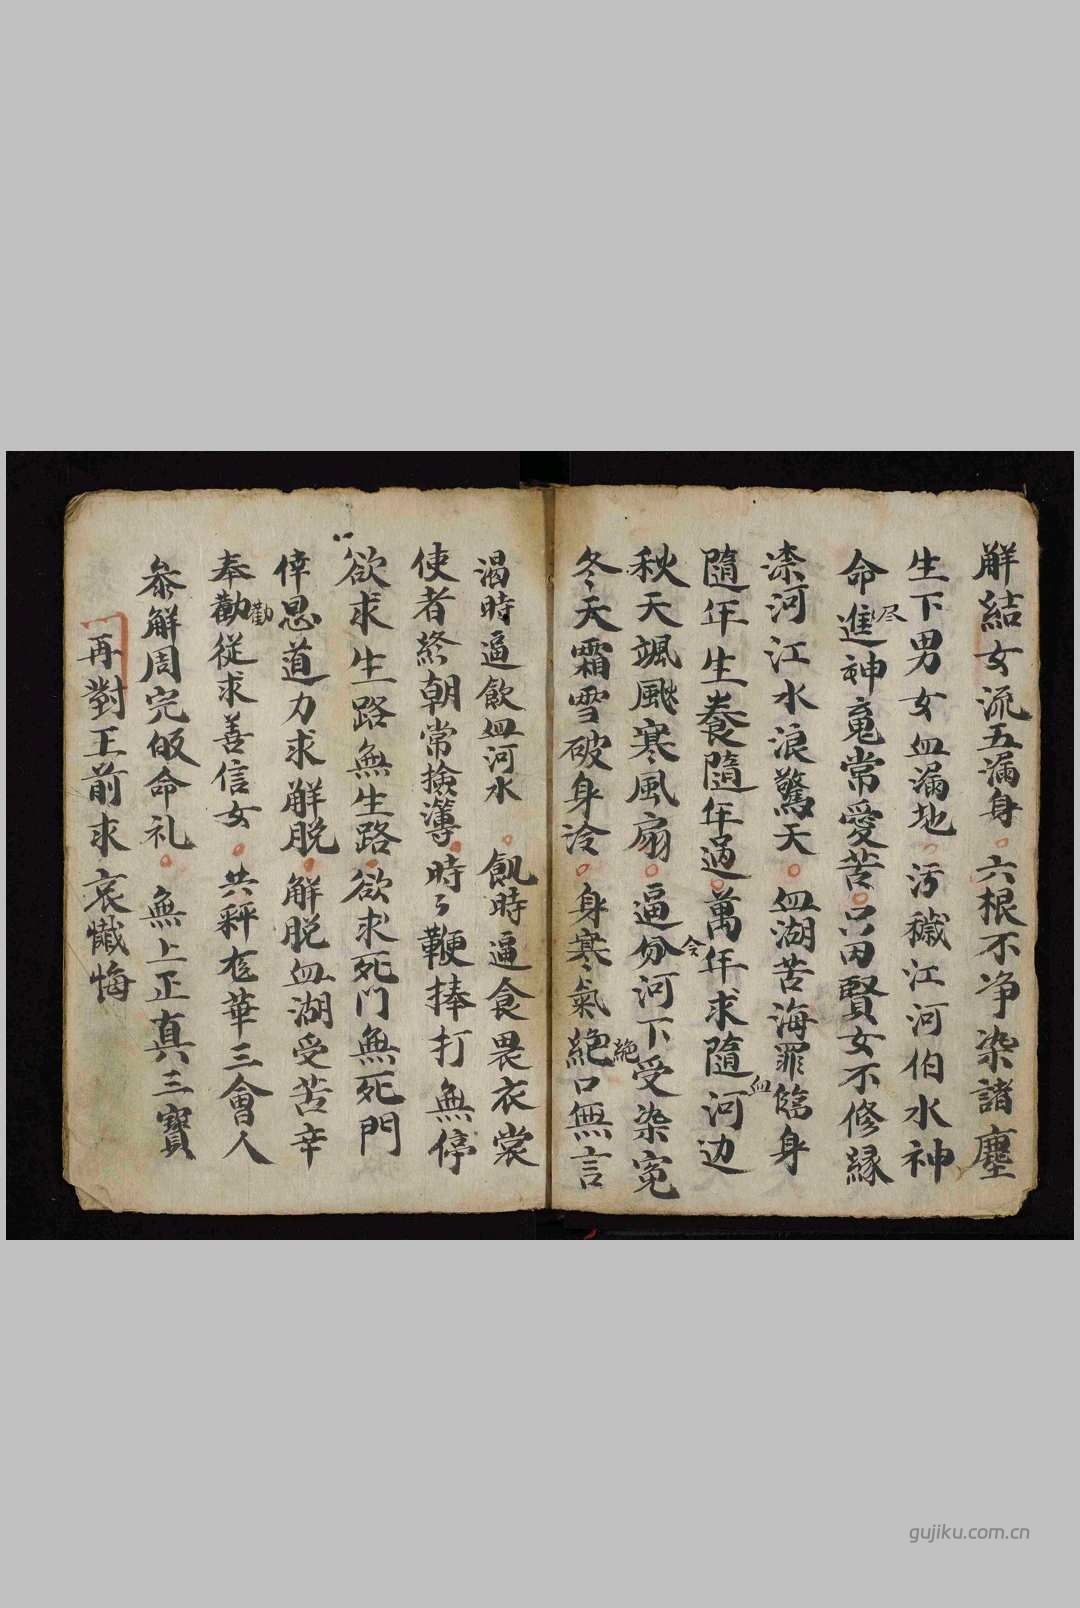 解結女流五漏身六根不净染諸塵
生下男女血漏地污穢江河伯水神
命進尽神竟常愛苦只因賢女不修縁
柰河江水浪驚天血湖苦海罪臨身
隨年生養隨年過萬年求隨血河边
秋天颯颷寒風扇逼分含河下受染冤
冬天霜雪破身冷身寒氣絕絶口無言
渴時逼飲血河水飢時逼食畏衣裳
使者終朝常撿簿時々鞭捧打無停
欲求生路無生路欲求死門無死門
倖恩道力求解脱解脱血湖受苦辛
奉勸勸従求善信女共秤龙華三會人
叅解周完皈命礼無上正真三寳
再對王前求哀懺悔
gujiku.com.cn